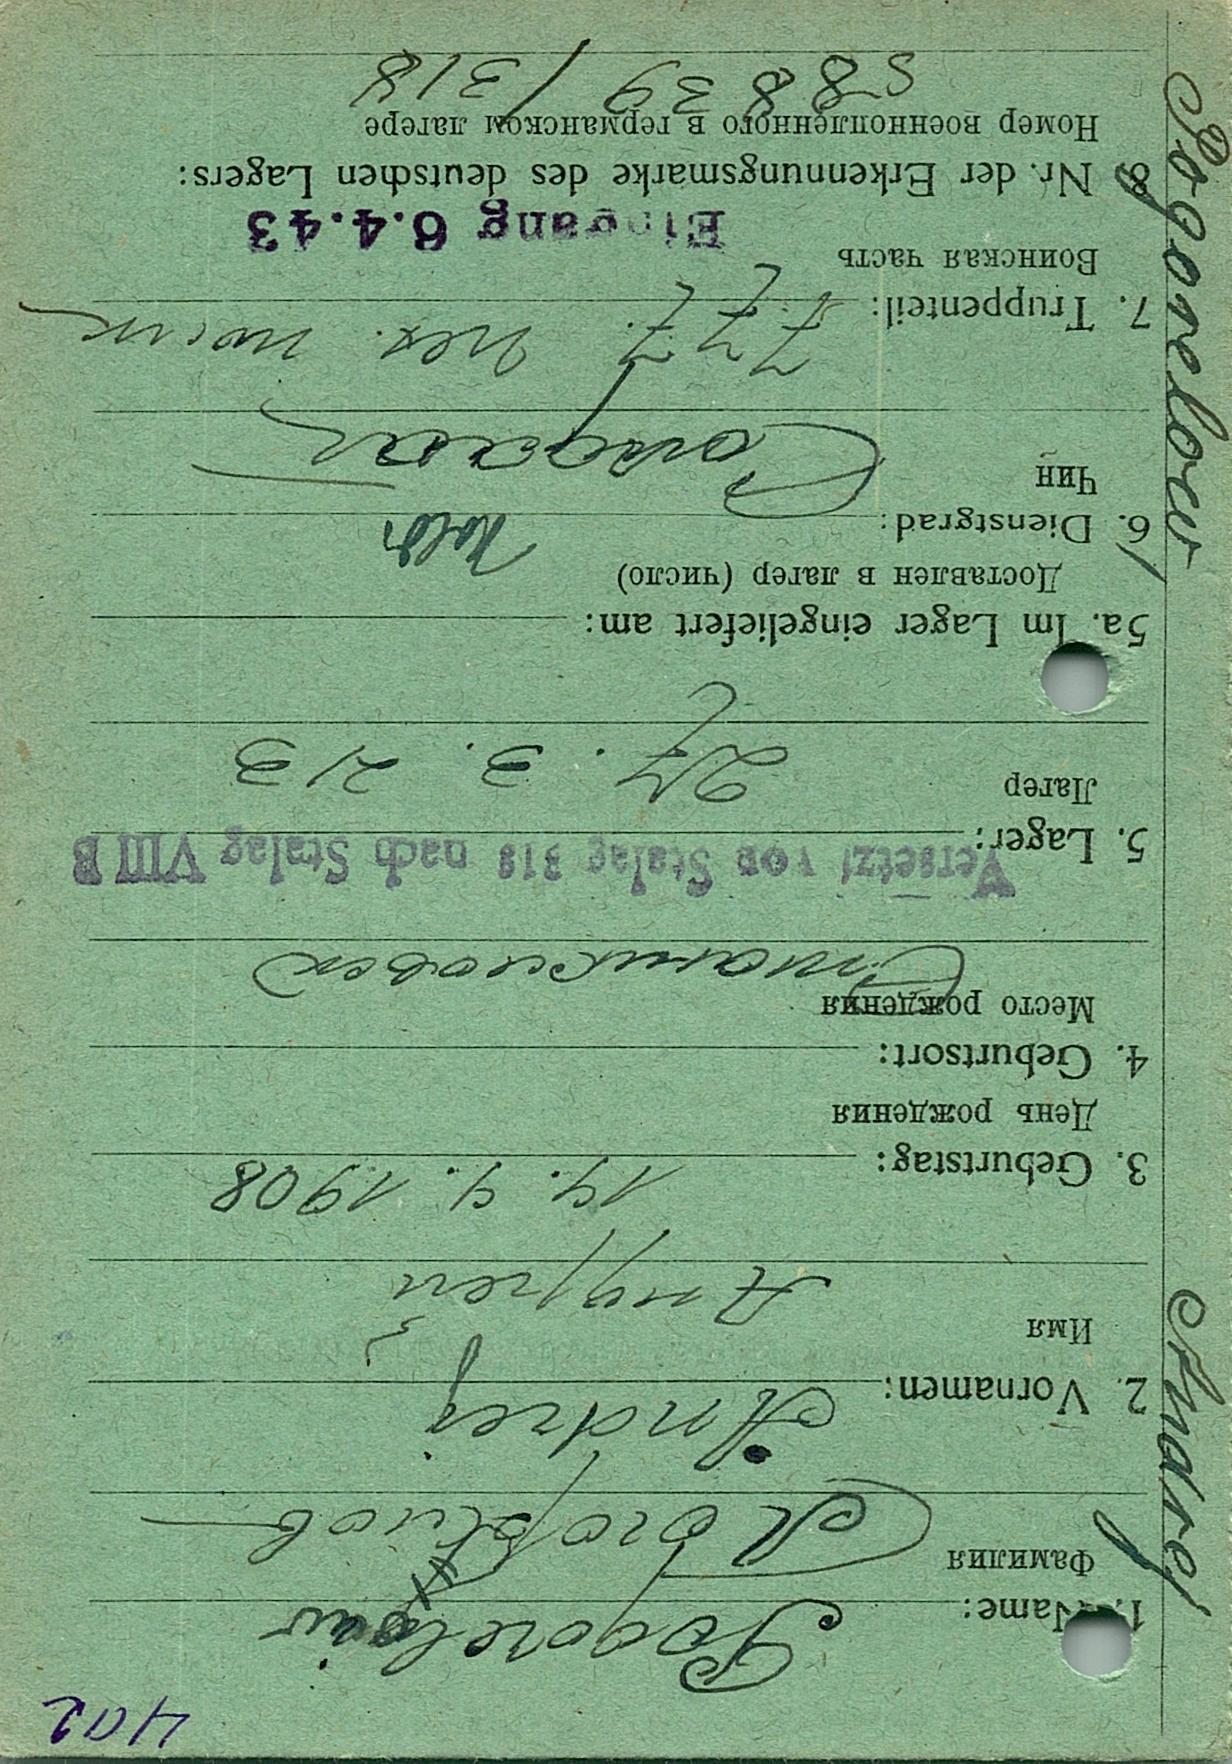 402
1. Name: Pogorelow
Фамилия Погорелов
2. Vornamen: Andrej
Имя Андрей
3. Geburtstag: 14. 4. 1908
День рождения
4. Geburtsort:
Место рождения
Versetzt von Stalag 318 nach Stalag VIII B
5. Lager:
Лагер 27. 3. 43
5a. Im Lager eingeliefert am:
Доставлен в лагер (число)
6. Dienstgrad:
Чин Солдат
7. Truppenteil: 777.
Воинская часть
Eingang 6.4.43
8 Nr. der Erkennungsmarke des deutschen Lagers:
Номер военнопленного в германском лагере
58839/318
Andrej